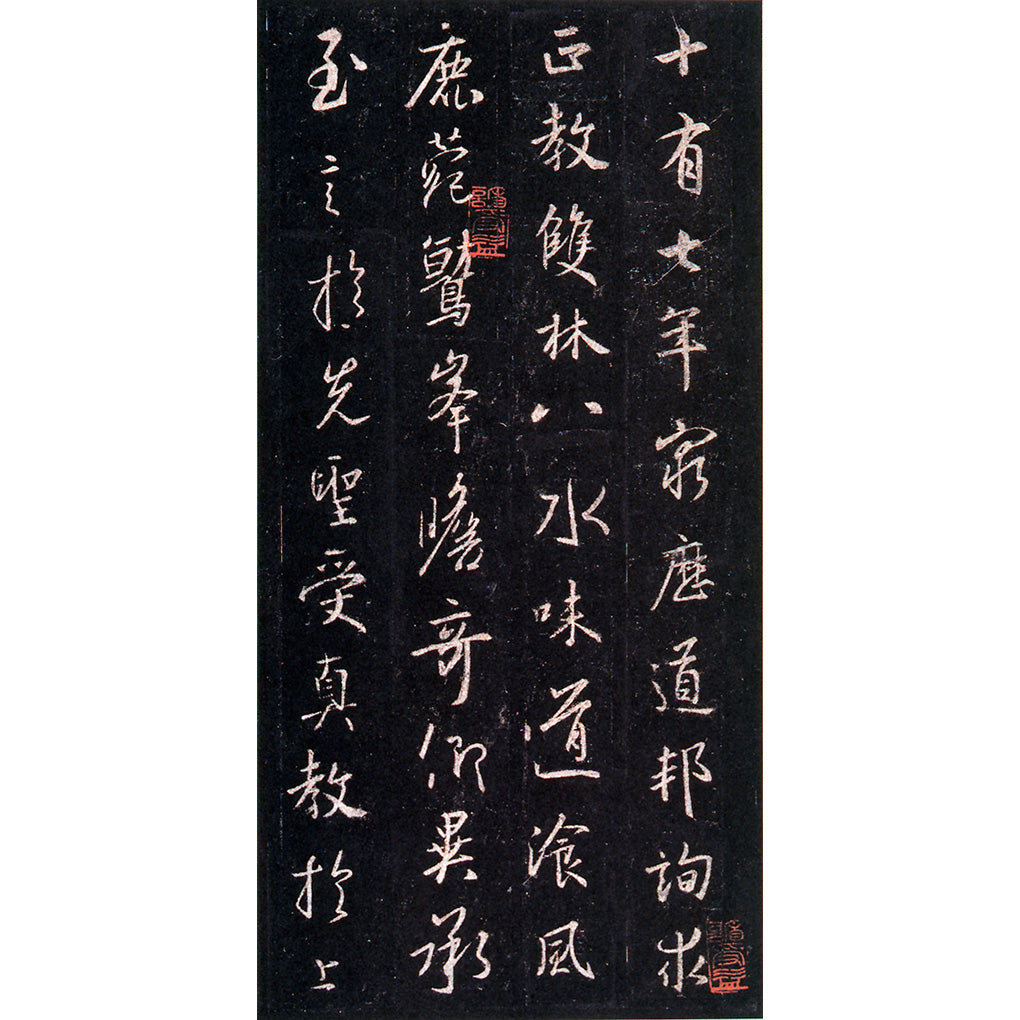 十有七年窮歷道邦詢求
正教雙林八水味道飡風
鹿菀鷲峯瞻奇仰異承
至言於先聖受真教於上